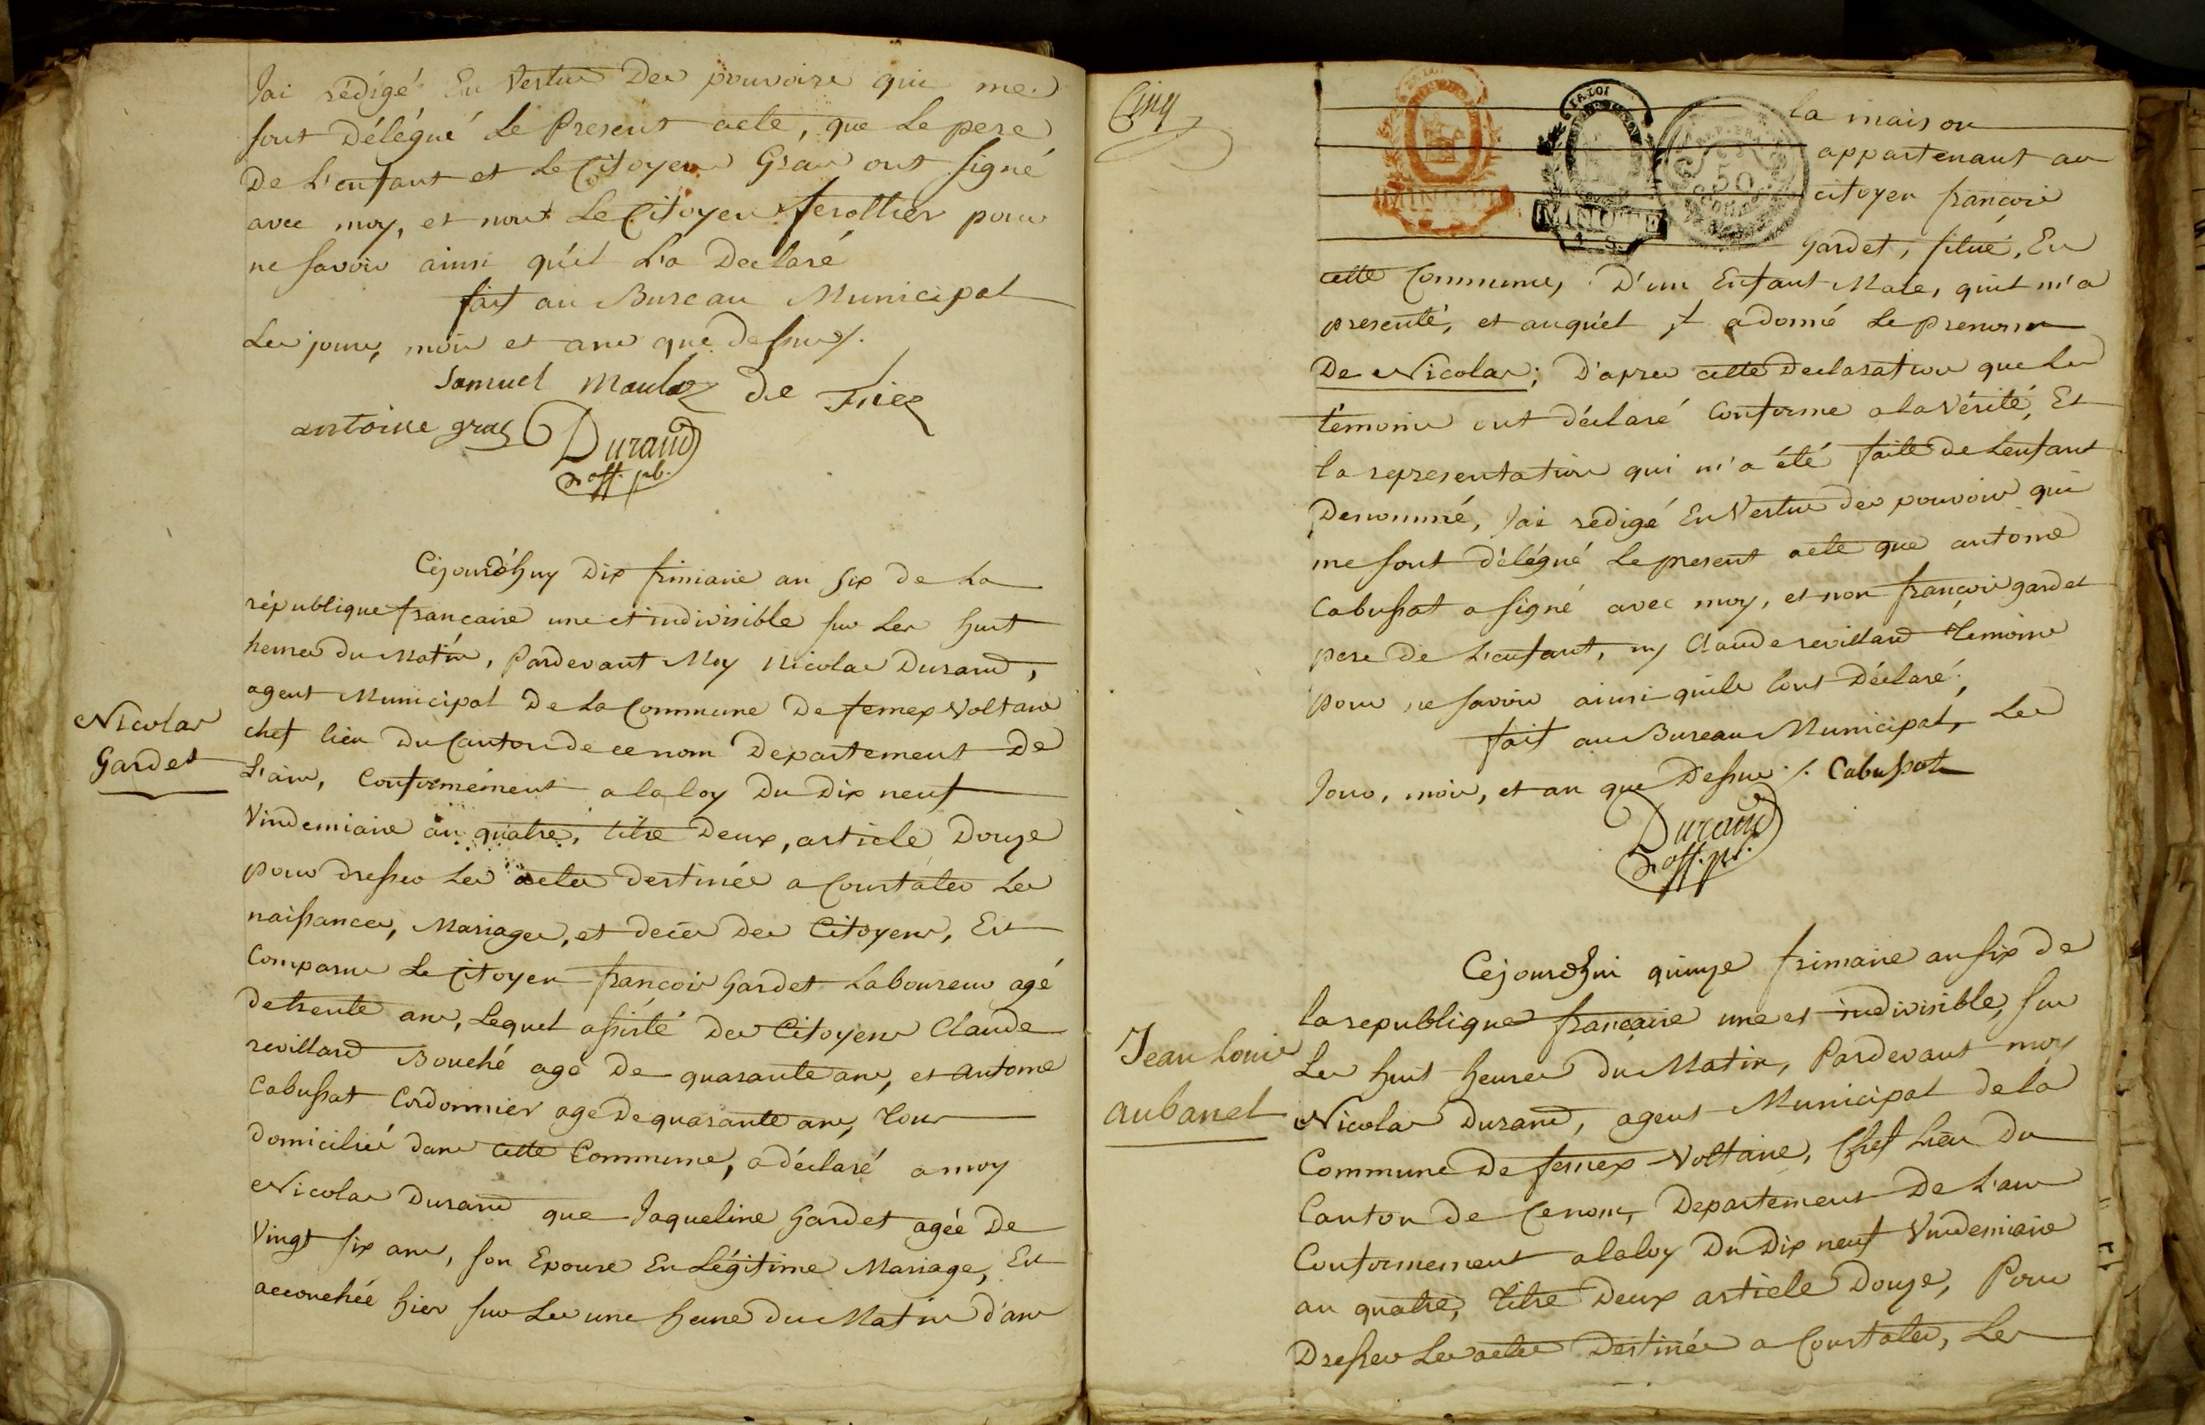 Jai rédigé En Vertue Des pouvoirs qui me
sont Délégué Le Present acte, que Le pere
De L'enfant et Le Citoyen Gras ont signé
avec moy, et non Le Citoyen pour
ne savoir ainsi qu'il L'a Declaré
fait au Bureau Municipal
Les jours, mois et ans que Dessus /.
Samuel De Fiez
antoine gras
Durand
off. pb.
Cejourd'huy Dix frimaire an six De La
république francaise une et indivisible sur Les huit
heures du Matin, Pardevant Moy Nicolas Durand,
agent Municipal De La Commune De fernex Voltaire
chef lieu Du Canton de ce nom Departement De
L'ain, Conformément a la loy Du Dix neuf
Vindemiaire an quatre, titre Deux, article Douze
pour dresser Les actes destinés a Constater Les
naissances, Mariages, et decès des Citoyens, Est
Comparus Le Citoyen francois Gardet Laboureur agé
de trente ans, Lequel assisté Des Citoyens Claude
revillard Bouché agé De quarante ans, et Antoine
Cabussat Cordonnier age De quarante ans, tous
Domiciliés dans cette Commune, a déclaré a moy
Nicolas Durand que Jaqueline Gardet agée De
Vingt six ans, son Epouse En Légitime Mariage, Est
accouchée hier sur Les une heure du Matin dans
Nicolas
Gardet
Cinq
la maison
appartenant au
citoyen francois
Gardet, situé, En
cette Commune, D'un Enfant Male, quil m'a
presenté, et auquel il a donné Le prenom
De Nicolas; D'apres cette Declaration que Les
témoins ont déclaré Conforme a la Vérité, Et
la representation qui m'a été faite de L'enfant
Denommé, Jai rédigé En Vertue des pouvoirs qui
me sont délégué Le present acte que antoine
Cabussat a signé avec moy, et non françois gardet
pere De L'enfant, ny Claude revillard témoins
pour ne savoir ainsi quils Lont Déclaré,
fait au Bureau Municipal, Les
Jours, mois, et an que Dessus /. Cabussat
Durand
off. pb.
Cejourdhui quinze frimaire an six de
la republique française une et indivisible, sur
Les huit heures du Matin, Pardevant moy
Nicolas Durand, agent Municipal de la
Commune De fernex Voltaire, Chef Lieu Du
Canton De Ce nom, Departement De L'ain
Conformement a la loy Du Dix neuf Vindemiaire
an quatre, titre Deux article Douze, Pour
Dresser Les actes Destinés a Constater, Les
Jean Louis
aubanel
LA LOI
MINUTE
50
MINUTE